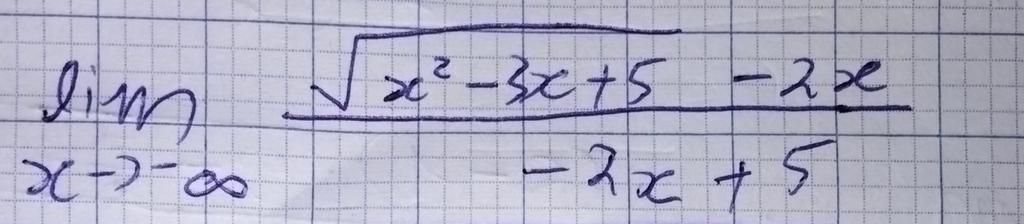 lim x→-∞ (√(x² - 3x + 5) - 2x) / (-2x + 5)